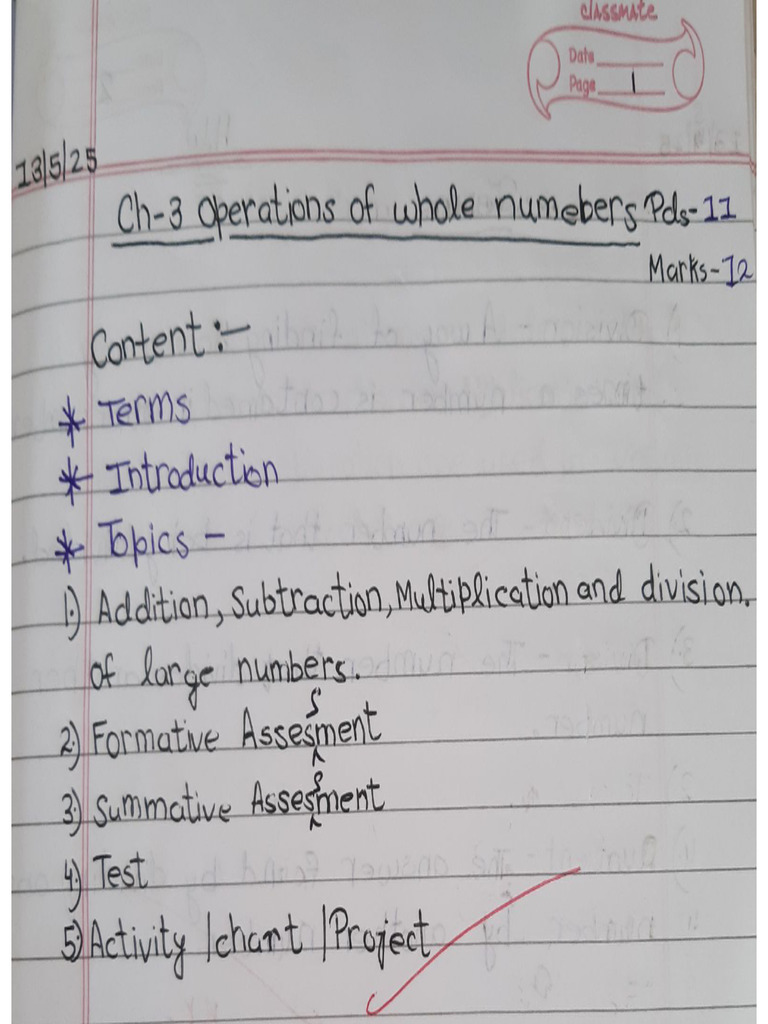 classmate
Date
Page 1
13/5/25
Ch-3 Operations of whole numebers Pds-11
Marks-12
Content :-
* Terms
* Introduction
* Topics -
1) Addition, Subtraction, Multiplication and division.
of large numbers.
2) Formative Assessment
3) Summative Assessment
4) Test
5) Activity /chart /Project